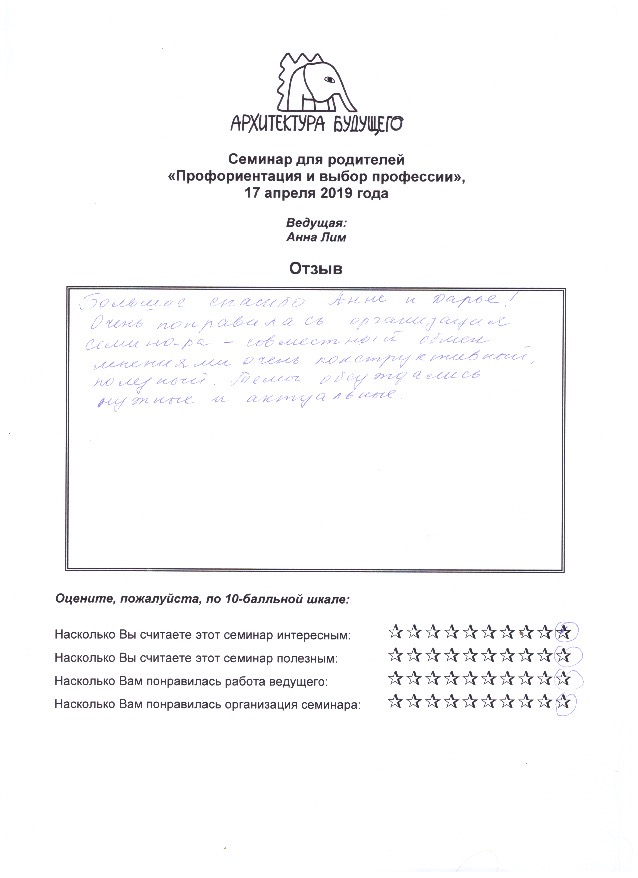 АРХИТЕКТУРА БУДУЩЕГО
Семинар для родителей
«Профориентация и выбор профессии»,
17 апреля 2019 года
Ведущая:
Анна Лим
Отзыв
Большое спасибо Анне и Дарье!
Очень понравилась организация
семинара - совместный обмен
мнениями очень конструктивный,
полезный. Темы обсуждались
нужные и актуальные
Оцените, пожалуйста, по 10-балльной шкале:
Насколько Вы считаете этот семинар интересным:
Насколько Вы считаете этот семинар полезным:
Насколько Вам понравилась работа ведущего:
Насколько Вам понравилась организация семинара: